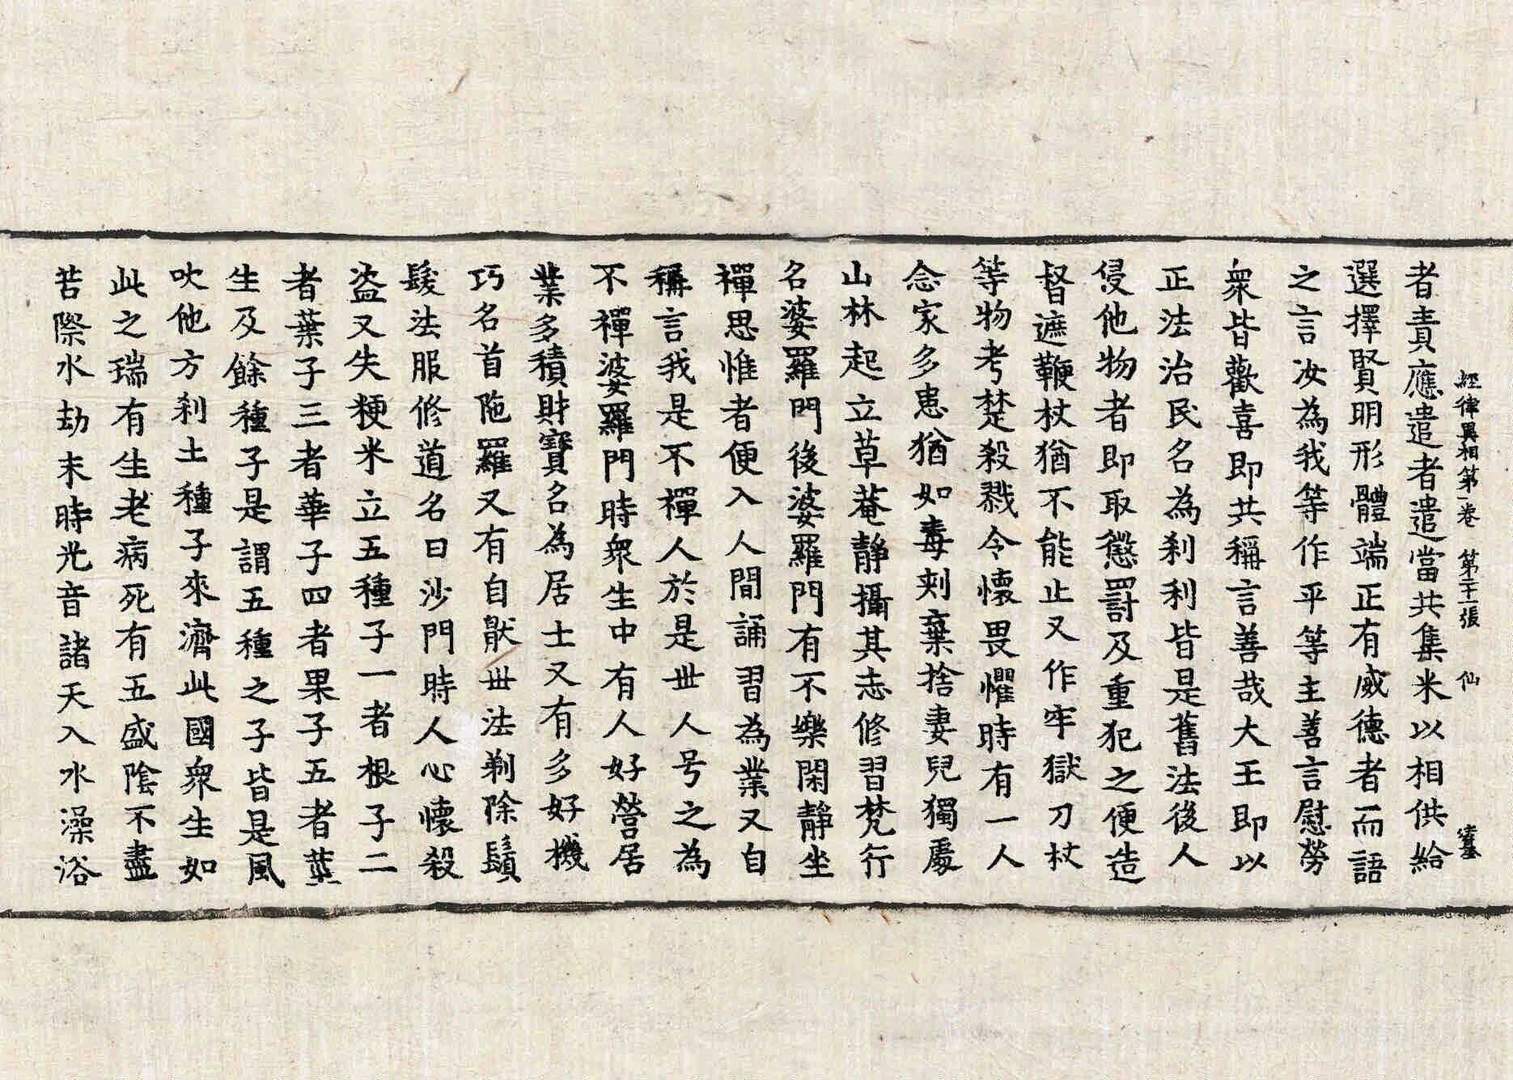 經律異相第一卷 第二十一張 仙
者責應遣者遣當共集米以相供給
選擇賢明形體端正有威德者而語
之言汝為我等作平等主善言慰勞
衆皆歡喜即共稱言善哉大王即以
正法治民名為刹利皆是舊法後人
侵他物者即取懲罰及重犯之便造
督遮鞭杖猶不能止又作牢獄刀杖
等物考楚殺戮令懷畏懼時有一人
念家多患猶如毒刾棄捨妻兒獨處
山林起立草菴靜攝其志修習梵行
名婆羅門後婆羅門有不樂閑靜坐
禪思惟者便入人間誦習為業又自
稱言我是不禪人於是世人号之為
不禪婆羅門時衆生中有人好營居
業多積財寶名為居士又有多好機
巧名首陁羅又有自猒世法剃除鬚
髮法服修道名曰沙門時人心懷殺
盗又失粳米立五種子一者根子二
者葉子三者華子四者果子五者莖
生及餘種子是謂五種之子皆是風
吹他方刹土種子來濟此國衆生如
此之瑞有生老病死有五盛陰不盡
苦際水劫末時光音諸天入水澡浴